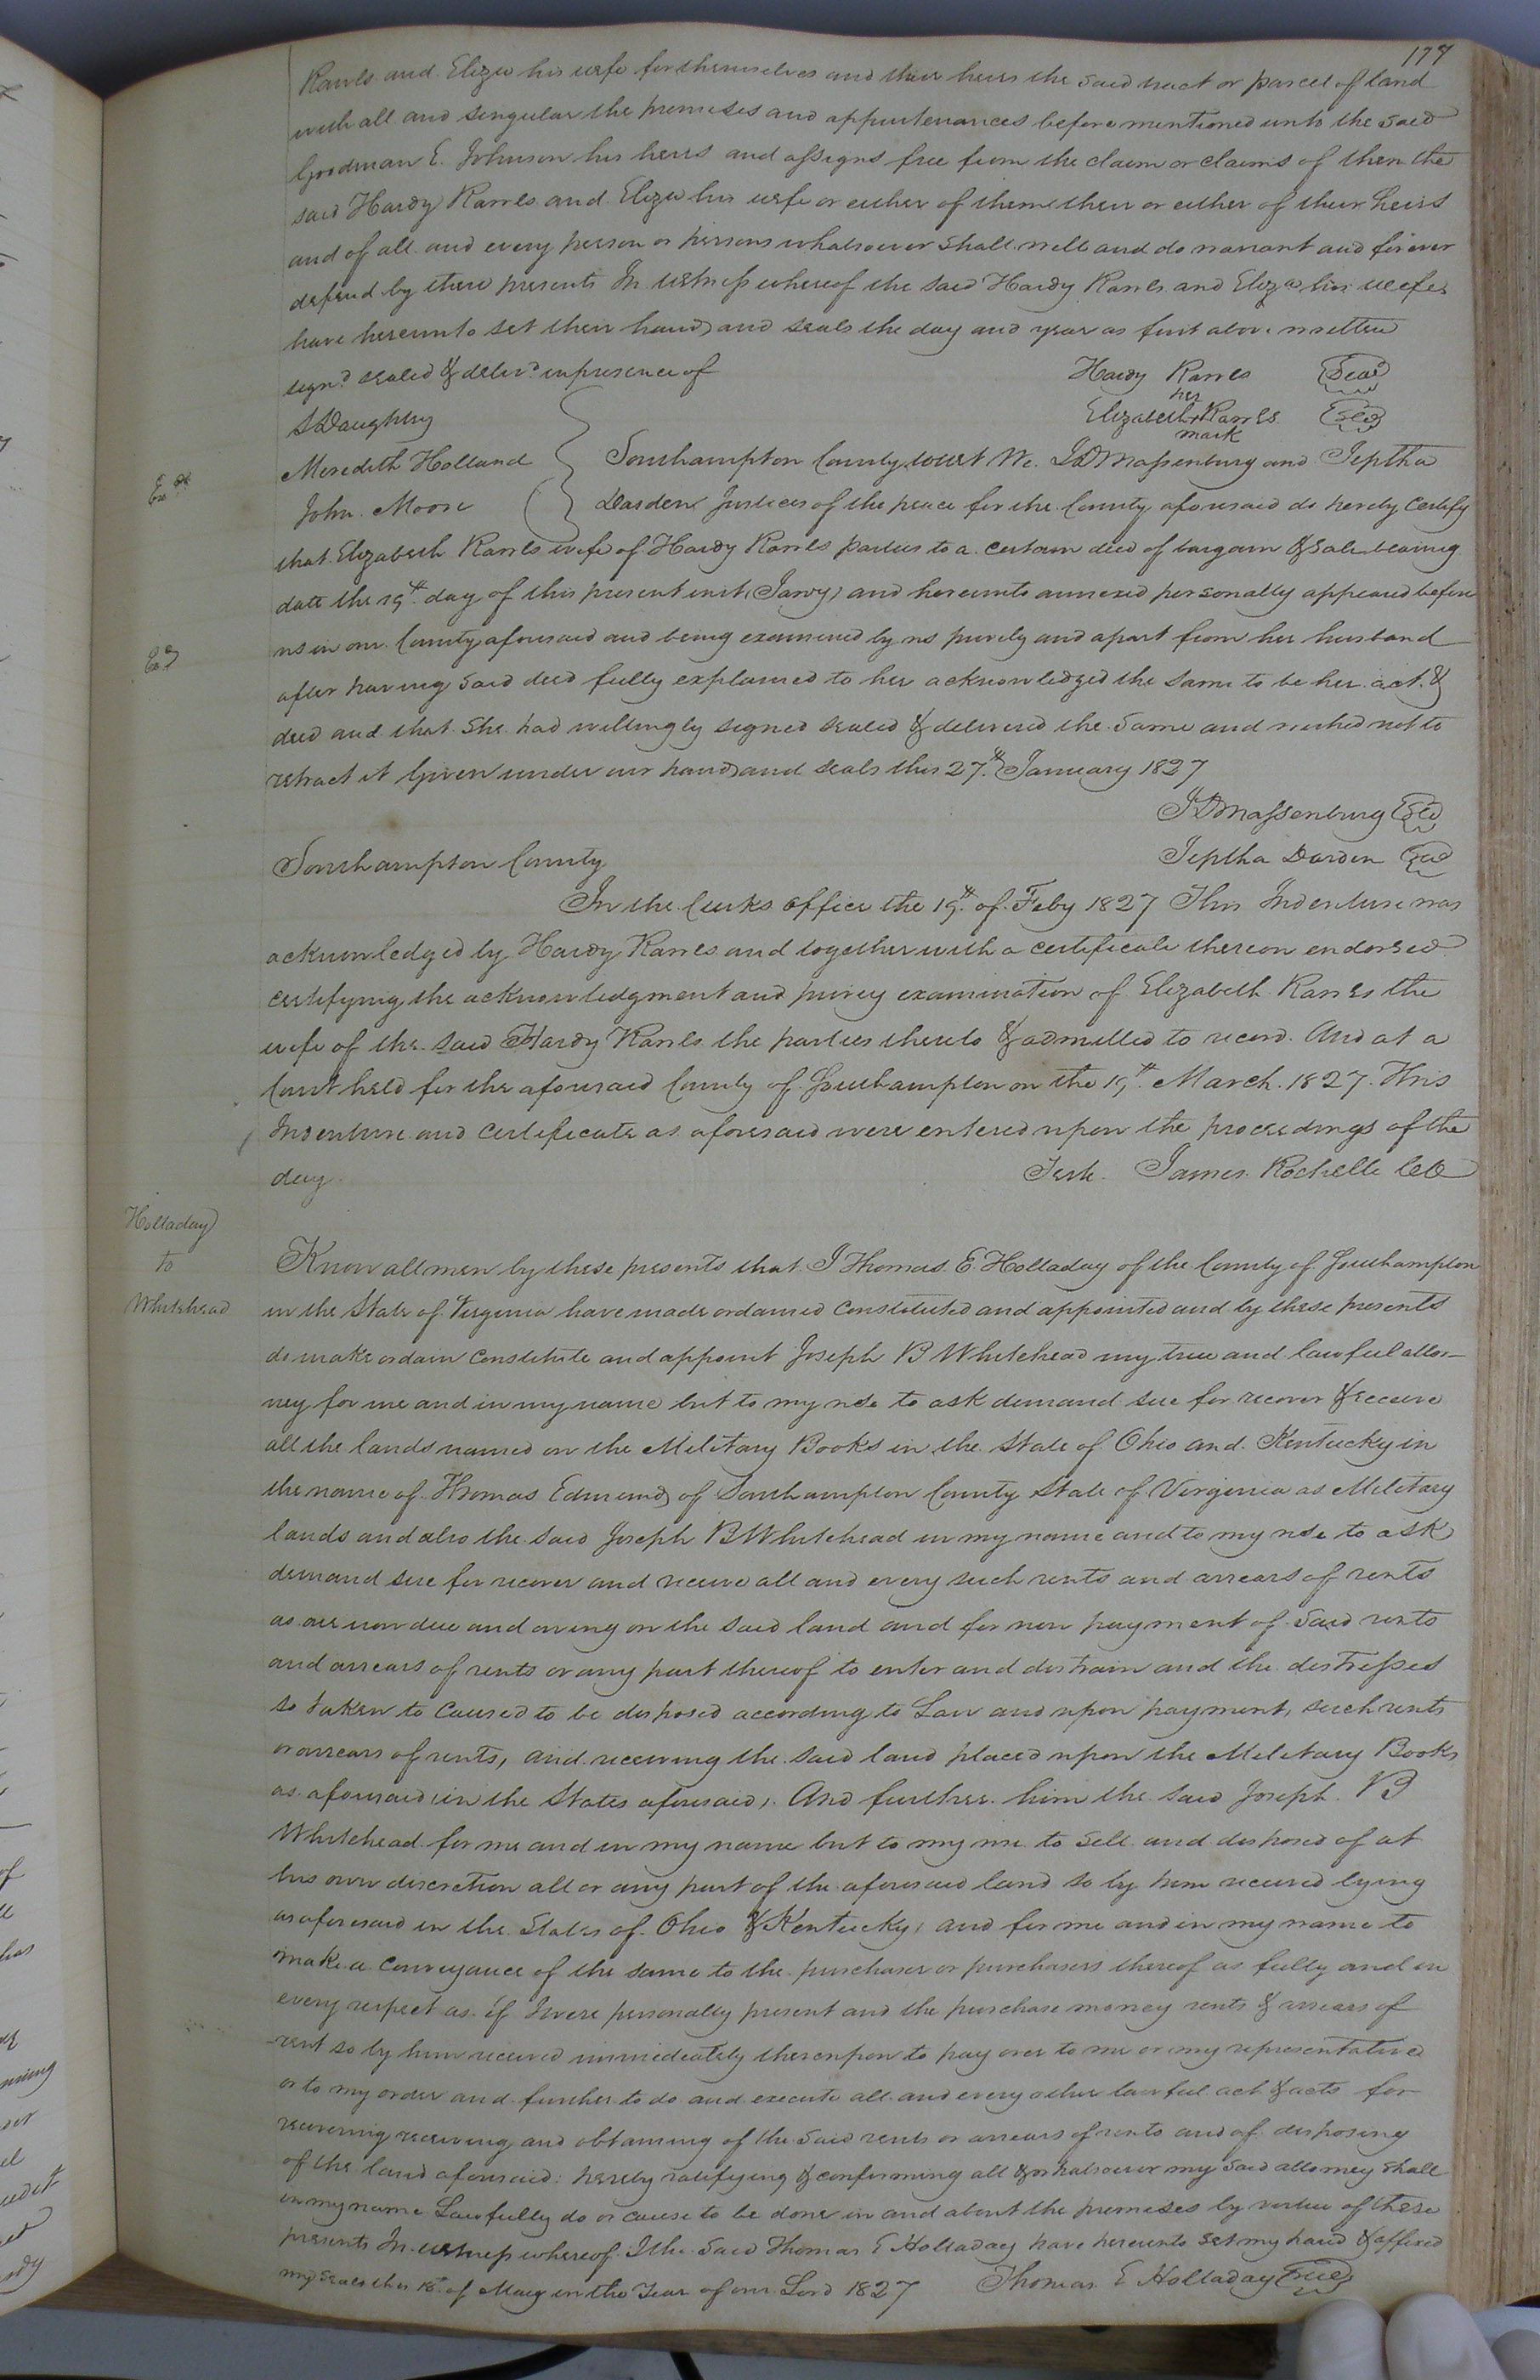 177
Rawls and Eliza his wife for themselves and their heirs the said tract or parcel of land
with all and singular the premises and appurtenances before mentioned unto the said
Goodman E. Johnson his heirs and assigns free from the claim or claims of them the
said Hardy Rawls and Eliza his wife or either of them their or either of their heirs
and of all and every person or persons whatsoever shall will and do warrant and forever
defend by these presents In witness whereof the said Hardy Rawls and Eliza his wife
have hereunto set their hands and seals the day and year as first above written
sign.d sealed & deliv.d in presence of Hardy Rawls Seal
her
S Daughtry Elizabeth + Rawls Seal
mark
Meredith Holland Southampton County Court We. J D Massenburg and Jeptha
Ex.
John Moore Darden Justices of the peace for the County aforesaid do hereby certify
that Elizabeth Rawls wife of Hardy Rawls parties to a certain deed of bargain & sale bearing
date the 19th day of this present inst (Jany) and hereunto annexed personally appeared before
us in our County aforesaid and being examined by us privily and apart from her husband
after having said deed fully explained to her acknowledged the same to be her act &
deed and that she had willingly signed sealed & delivered the same and wished not to
retract it Given under our hands and seals this 27th January 1827
J D Massenburg Seal
Southampton County Jeptha Darden Seal
In the Clerks office the 19th of Feby 1827 This Indenture was
acknowledged by Hardy Rawls and together with a certificate thereon endorsed
certifying the acknowledgment and privy examination of Elizabeth Rawls the
wife of the said Hardy Rawls the parties thereto & admitted to record. And at a
Court held for the aforesaid County of Southampton on the 19th March. 1827. This
Indenture and Certificate as aforesaid were entered upon the proceedings of the
day. Teste. James Rochelle
Holladay
to
Whitehead
Know all men by these presents that I Thomas E Holladay of the County of Southampton
in the State of Virginia have made ordained constituted and appointed and by these presents
do make ordain constitute and appoint Joseph B Whitehead my true and lawful attor-
ney for me and in my name but to my use to ask demand sue for recover & receive
all the lands named on the Military Books in the State of Ohio and Kentucky in
the name of Thomas Edmunds of Southampton County State of Virginia as Military
lands and also the said Joseph B Whitehead in my name and to my use to ask
demand sue for recover and receive all and every such rents and arrears of rents
as are now due and owing on the said land and for non payment of said rents
and arrears of rents or any part thereof to enter and distrain and the distresses
so taken to caused to be disposed according to Law and upon payment, such rents
or arrears of rents, and receiving the said land placed upon the Military Books
as aforesaid in the States aforesaid, And further him the said Joseph B
Whitehead for me and in my name but to my use to sell and disposed of at
his own discretion all or any part of the aforesaid land so by him received lying
as aforesaid in the States of Ohio & Kentucky, and for me and in my name to
make a conveyance of the same to the purchaser or purchasers thereof as fully and in
every respect as if I were personally present and the purchase money rents & arrears of
rent so by him received immediately thereupon to pay over to me or my representative
or to my order and further to do and execute all and every other lawful act & acts for
recovering receiving and obtaining of the said rents or arrears of rents and of disposing
of the land aforesaid: hereby ratifying & confirming all & whatsoever my said attorney shall
in my name Lawfully do or cause to be done in and about the premises by virtue of these
presents In witness whereof I the said Thomas E Holladay have hereunto set my hand & affixed
my seal this of May in the Year of our Lord 1827 Thomas E Holladay Seal